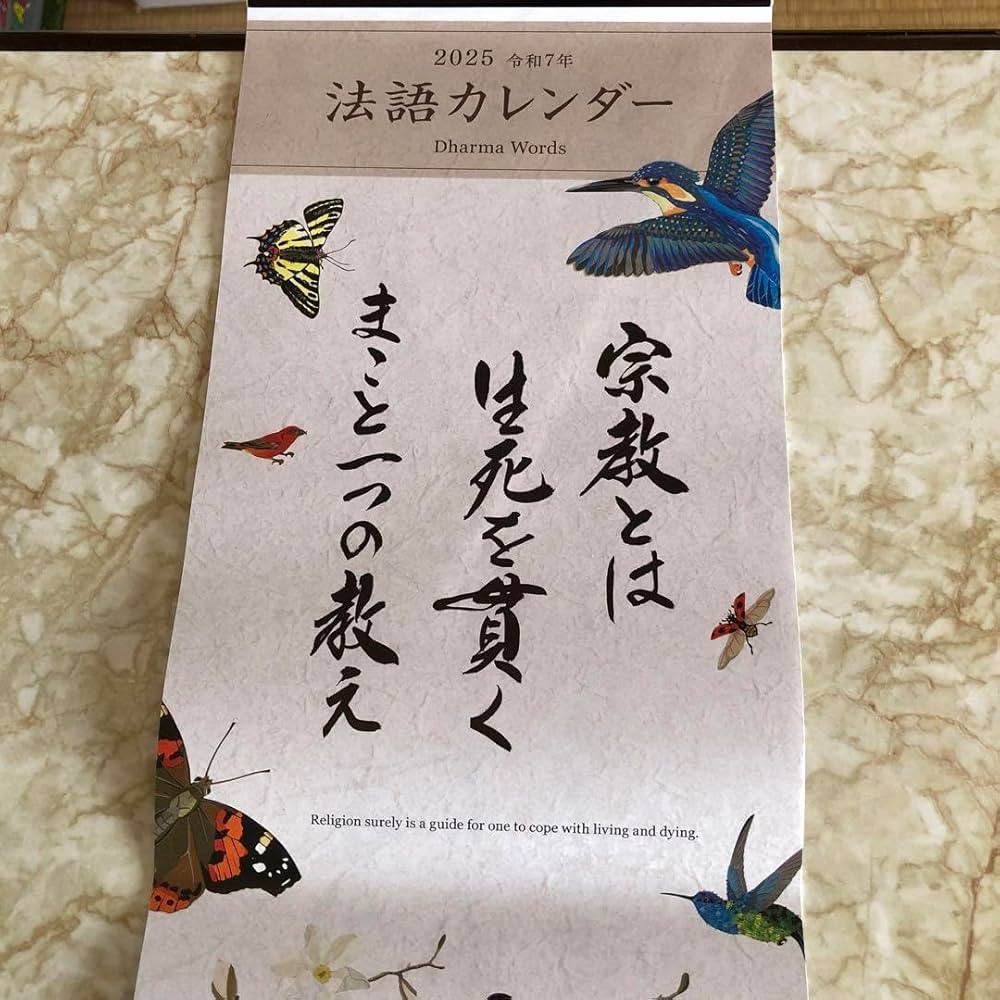 2025 令和7年
法語カレンダー
Dharma Words
宗教とは
生死を貫く
まこと一つの教え
Religion surely is a guide for one to cope with living and dying.